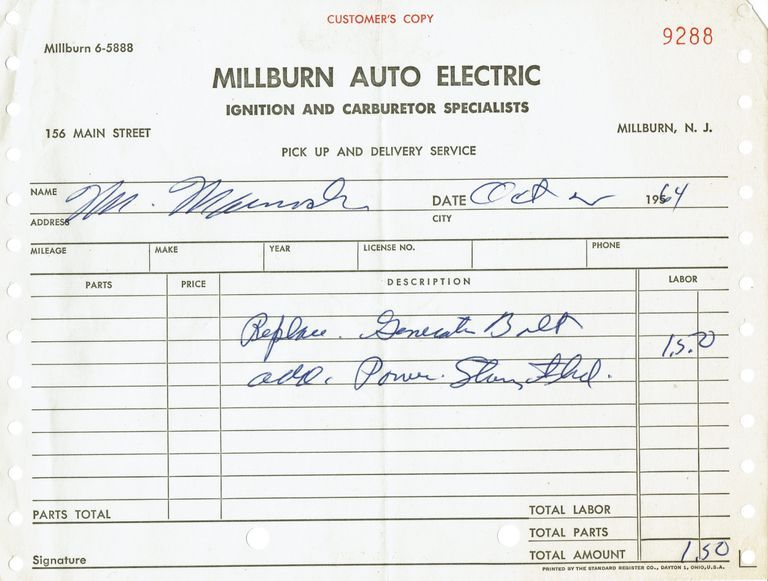 CUSTOMER'S COPY
Millburn 6-5888
9288
MILLBURN AUTO ELECTRIC
IGNITION AND CARBURETOR SPECIALISTS
156 MAIN STREET MILLBURN, N. J.
PICK UP AND DELIVERY SERVICE
NAME Mr. DATE Oct 1964
ADDRESS CITY
MILEAGE MAKE YEAR LICENSE NO. PHONE
PARTS PRICE DESCRIPTION LABOR
Replace. Generator Belt 1.50
add. Power. Fluid.
PARTS TOTAL TOTAL LABOR
TOTAL PARTS
Signature TOTAL AMOUNT 1.50
PRINTED BY THE STANDARD REGISTER CO., DAYTON 1, OHIO, U.S.A.